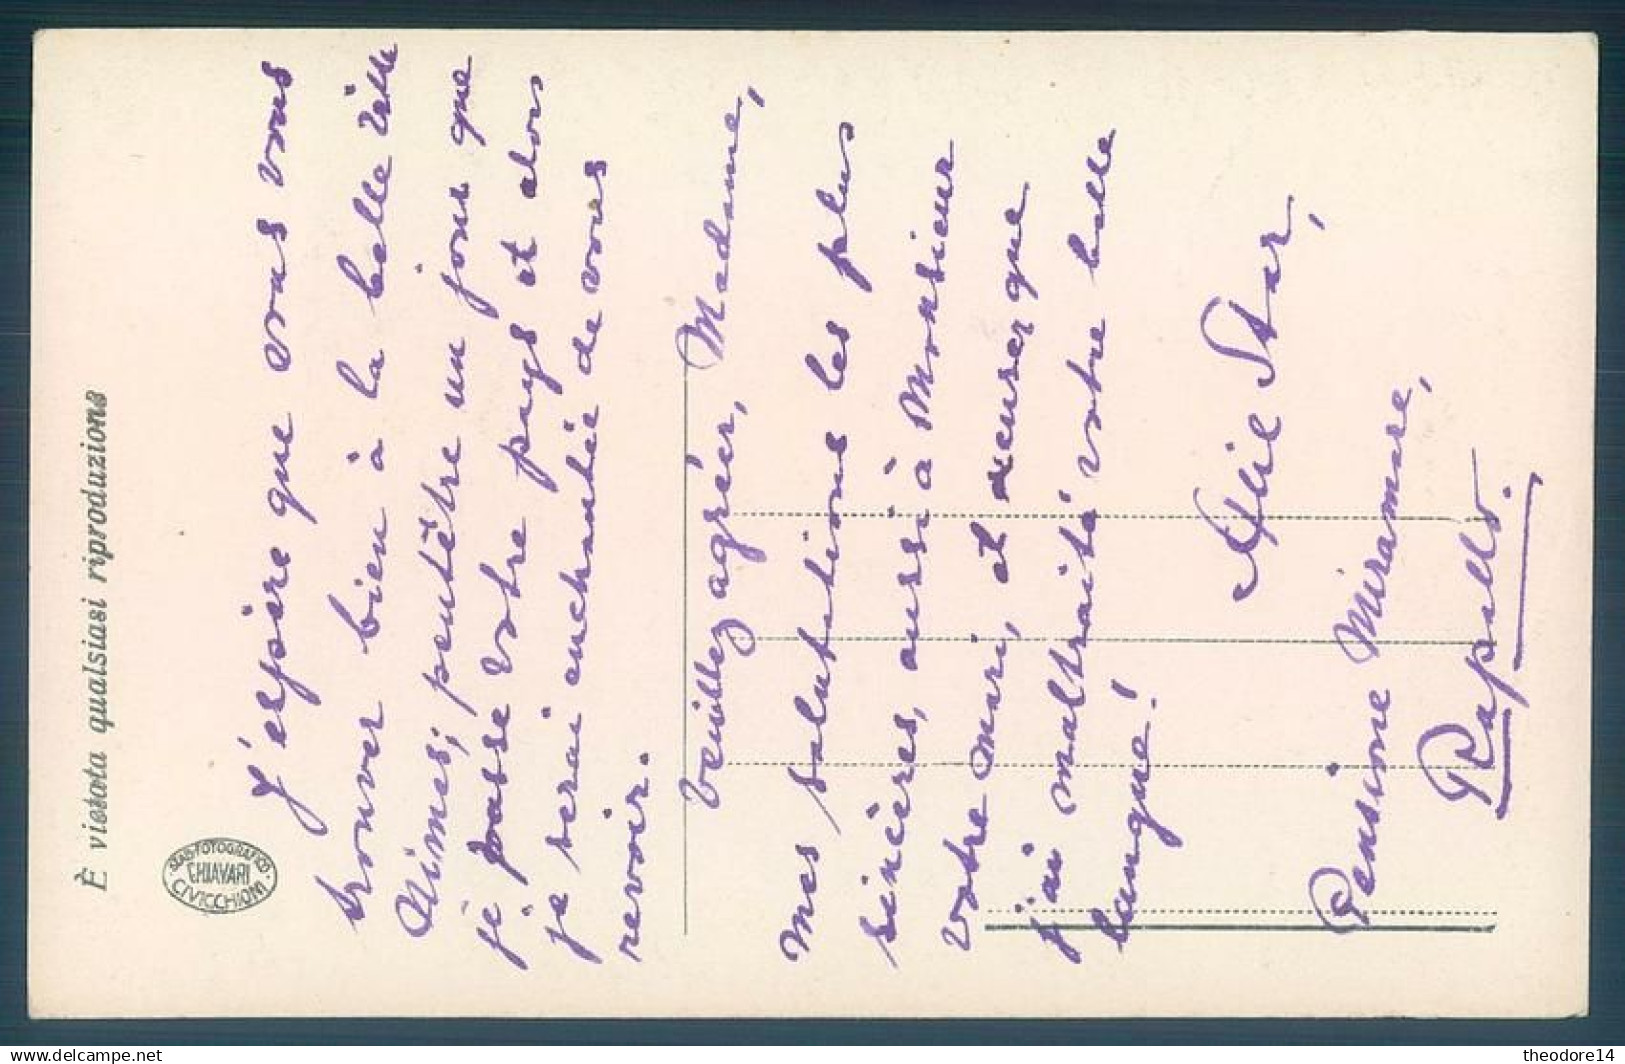 È vietata qualsiasi riproduzione
STAB-FOTOGRAFICO
CHIAVARI
CIVICCHIONI
J'espére que vous vous
trouver bien à la belle ville
Nîmes; peutêtre un jour que
je passe votre pays et alors
je serai enchantée de vous
revoir.
Veuillez agréer, Madame,
mes salutations les plus
sincères, aussi à Monsieur
votre mari, et excuser que
j'ai maltraité votre belle
langue!
Star,
Pensione Miramare,
Rapallo.
www.delcampe.net
theodore14